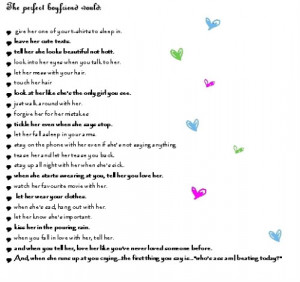 The perfect boyfriend would:
give her one of your t-shirts to sleep in.
leave her cute texts.
tell her she looks beautiful not hott.
look into her eyes when you talk to her.
let her mess with your hair.
touch her hair
look at her like she's the only girl you see.
just walk around with her.
forgive her for her mistakes
tickle her even when she says stop.
let her fall asleep in your arms.
stay on the phone with her even if she's not saying anything
tease her and let her tease you back.
stay up all night with her when she's sick.
when she starts swearing at you, tell her you love her.
watch her favourite movie with her.
let her wear your clothes.
when she's sad, hang out with her.
let her know she's important.
kiss her in the pouring rain.
when you fall in love with her, tell her.
and when you tell her, love her like you've never loved someone before.
And, when she runs up at you crying...the first thing you say is..."who's ass am I beating today?"